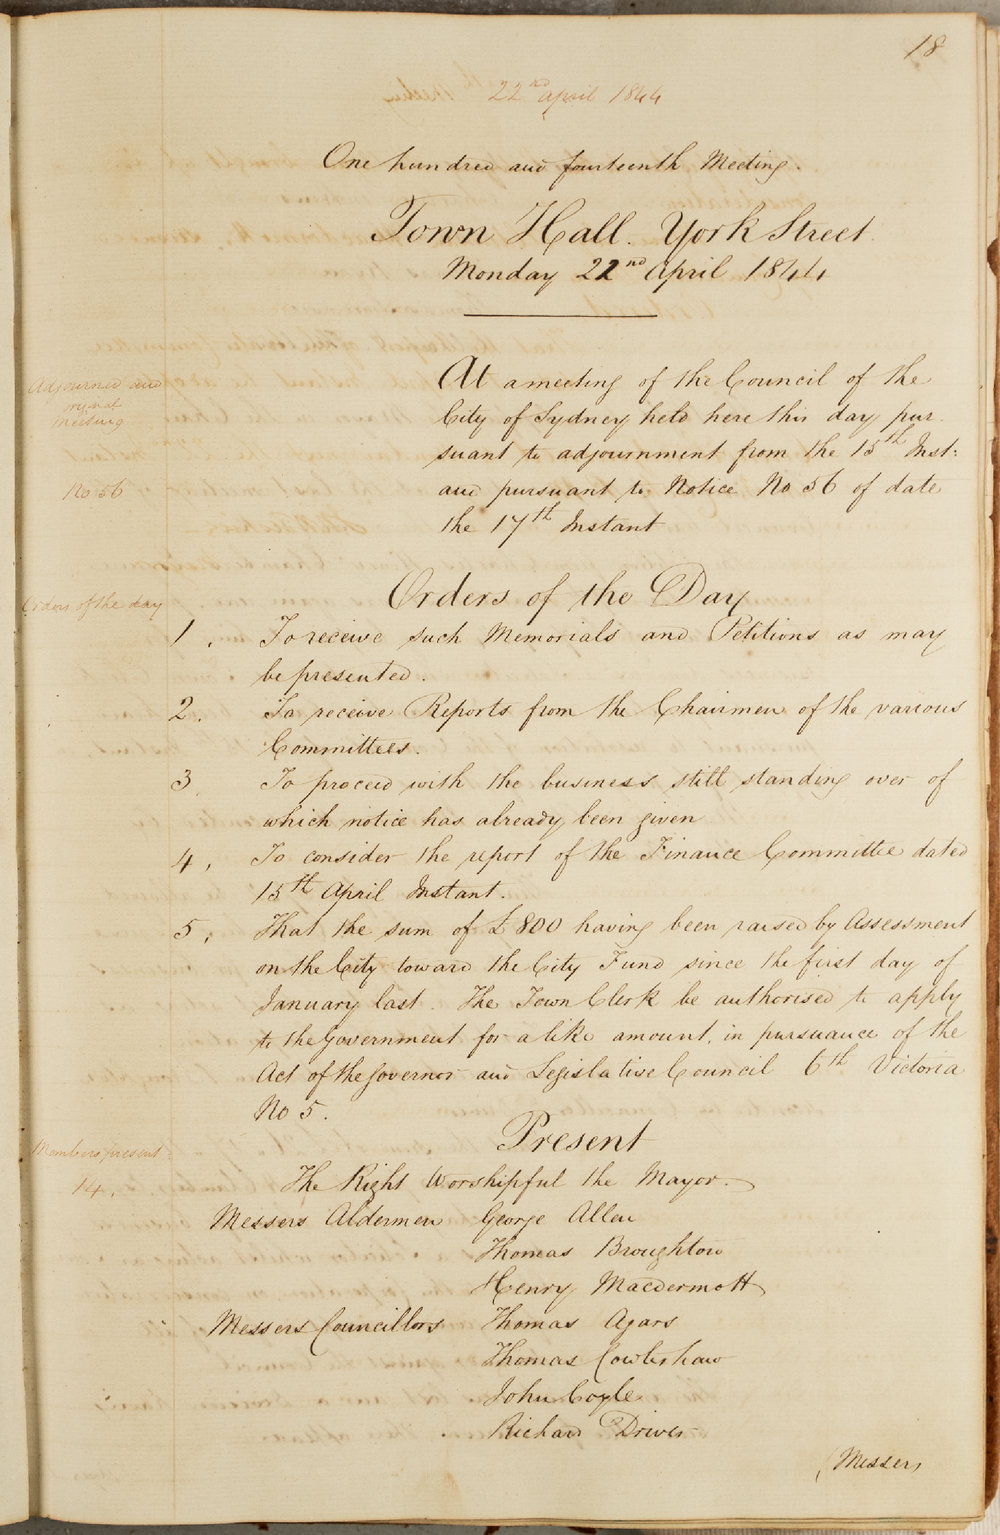 18
22nd April 1844
One hundred and fourteenth Meeting.
Town Hall. York Street.
Monday 22nd April 1844
Adjourned and
meeting
At a meeting of the Council of the
City of Sydney held here this day pur
suant to adjournment from the 15th Inst:
No 56
and pursuant to Notice No 56 of date
the 17th Instant
Orders of the Day
Orders of the day
1. To receive such Memorials and Petitions as may
be presented.
2. To receive Reports from the Chairmen of the various
Committees.
3. To proceed with the business still standing over of
which notice has already been given
4. To consider the report of the Finance Committee dated
15th April Instant.
5. That the sum of £800 having been raised by Assessment
on the City toward the City Fund since the first day of
January last. The Town Clerk be authorised to apply
to the Government for a like amount, in pursuance of the
Act of the Governor and Legislative Council 6th Victoria
No 5.
Present
Members present
14.
The Right Worshipful the Mayor.
Messers Aldermen George Allen
Thomas Broughton
Henry Macdermott
Messers Councillors Thomas Agars
Thomas Cowlishaw
John Coyle
Richard Driver
(Messers